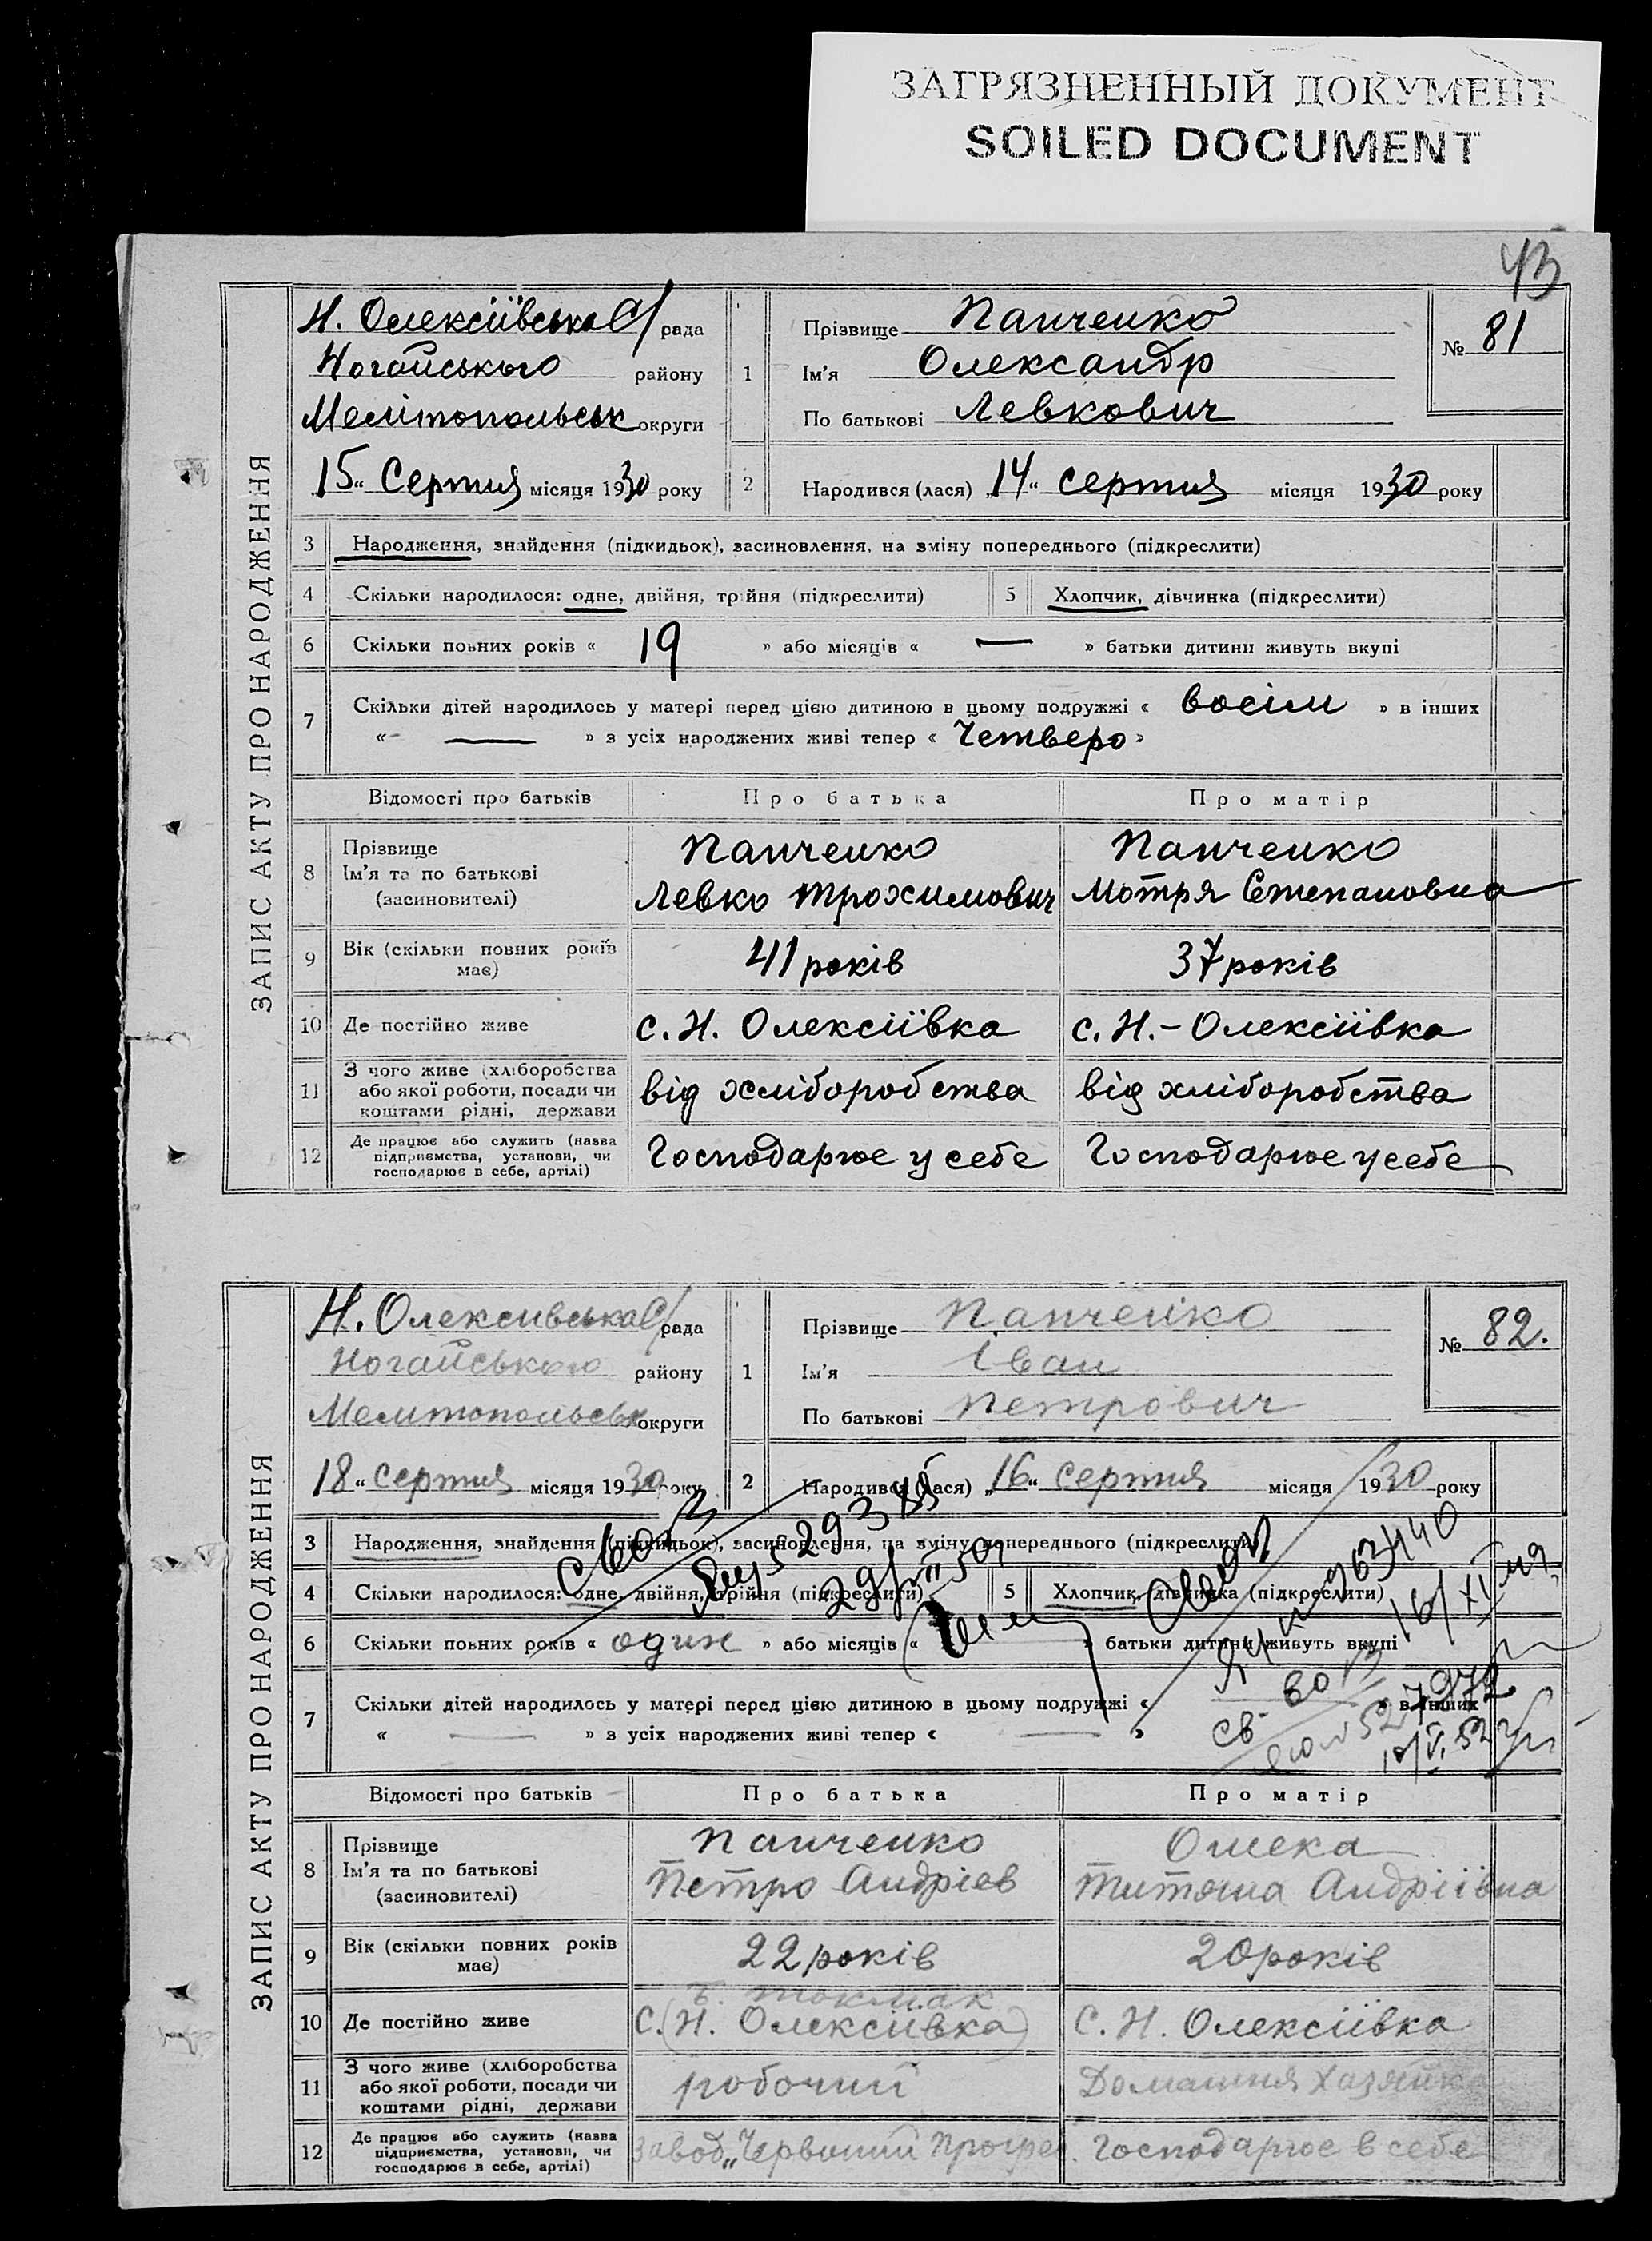 ЗАГРЯЗНЕННЫЙ ДОКУМЕНТ
SOILED DOCUMENT
43
ЗАПИС АКТУ ПРО НАРОДЖЕННЯ
Н. Олексіївська С/рада
Ногайського району
Мелітопольськ округи
„15“ Серпня місяця 1930 року
1 Прізвище Панченко
Ім'я Олександр
По батькові Левкович
№ 81
2 Народився (лася) „14“ серпня місяця 1930 року
3 Народження, знайдення (підкидьок), засиновлення, на зміну попереднього (підкреслити)
4 Скільки народилося: одне, двійня, трійня (підкреслити) 5 Хлопчик, дівчинка (підкреслити)
6 Скільки повних років « 19 » або місяців « — » батьки дитини живуть вкупі
7 Скільки дітей народилось у матері перед цією дитиною в цьому подружжі « восім » в інших
« — » з усіх народжених живі тепер « Четверо »
Відомості про батьків Про батька Про матір
8 Прізвище Панченко Панченко
Ім'я та по батькові Левко Трохимович Мотря Степановна
(засиновителі)
9 Вік (скільки повних років має) 41 років 37 років
10 Де постійно живе с. Н. Олексіївка с. Н.-Олексіївка
11 З чого живе (хліборобства
або якої роботи, посади чи від хліборобства від хліборобства
коштами рідні, держави
12 Де працює або служить (назва
підприємства, установи, чи Господарює у себе Господарює у себе
господарює в себе, артілі)
ЗАПИС АКТУ ПРО НАРОДЖЕННЯ
Н. Олексивська С/рада
Ногайського району
Мелитопольськ округи
„18“ серпня місяця 1930 року
1 Прізвище Панченко
Ім'я Іван
По батькові Петрович
№ 82.
2 Народився (лася) „16“ серпня місяця 1930 року
3 Народження, знайдення (підкидьок), засиновлення, на зміну попереднього (підкреслити)
4 Скільки народилося: одне, двійня, трійня (підкреслити) 5 Хлопчик, дівчинка (підкреслити)
6 Скільки повних років « один » або місяців « — » батьки дитини живуть вкупі
7 Скільки дітей народилось у матері перед цією дитиною в цьому подружжі « » в інших
« — » з усіх народжених живі тепер « — »
Відомості про батьків Про батька Про матір
8 Прізвище Панченко Ошека
Ім'я та по батькові Петро Андрієв Титяна Андріївна
(засиновителі)
9 Вік (скільки повних років має) 22 років 20 років
Б. Токмак
10 Де постійно живе С. (Н. Олексіївка) С. Н. Олексіївка
11 З чого живе (хліборобства
або якої роботи, посади чи робочий Домашня Хазяйка
коштами рідні, держави
12 Де працює або служить (назва
підприємства, установи, чи Завод „Червоний Прогрес Господарює в себе
господарює в себе, артілі)